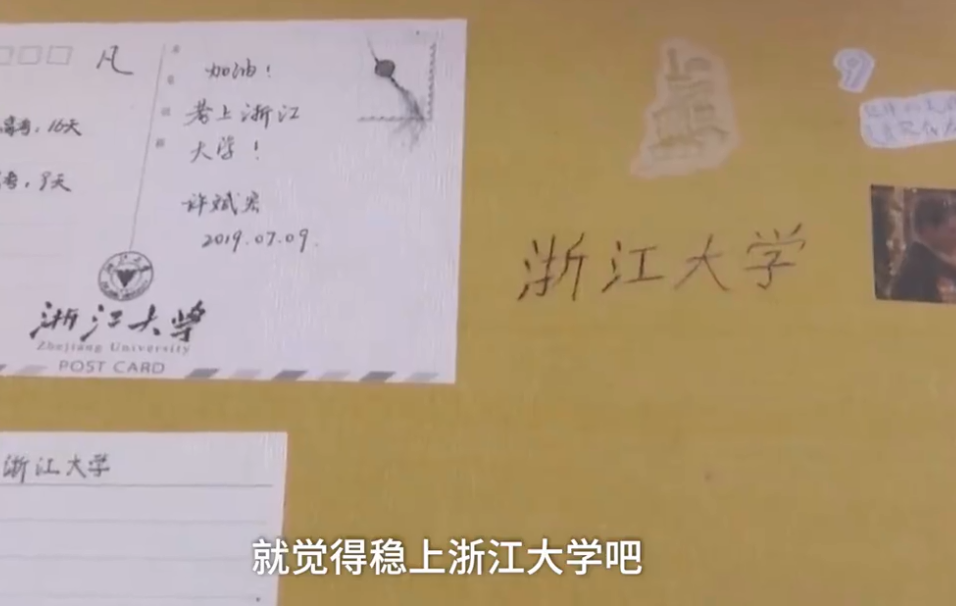 凡
加油！
考上浙江
大学！
许斌宏
2019.07.09.
高考，16天
考，9天
浙江大学
Zhejiang University
POST CARD
浙江大学
9
浙江大学
就觉得稳上浙江大学吧